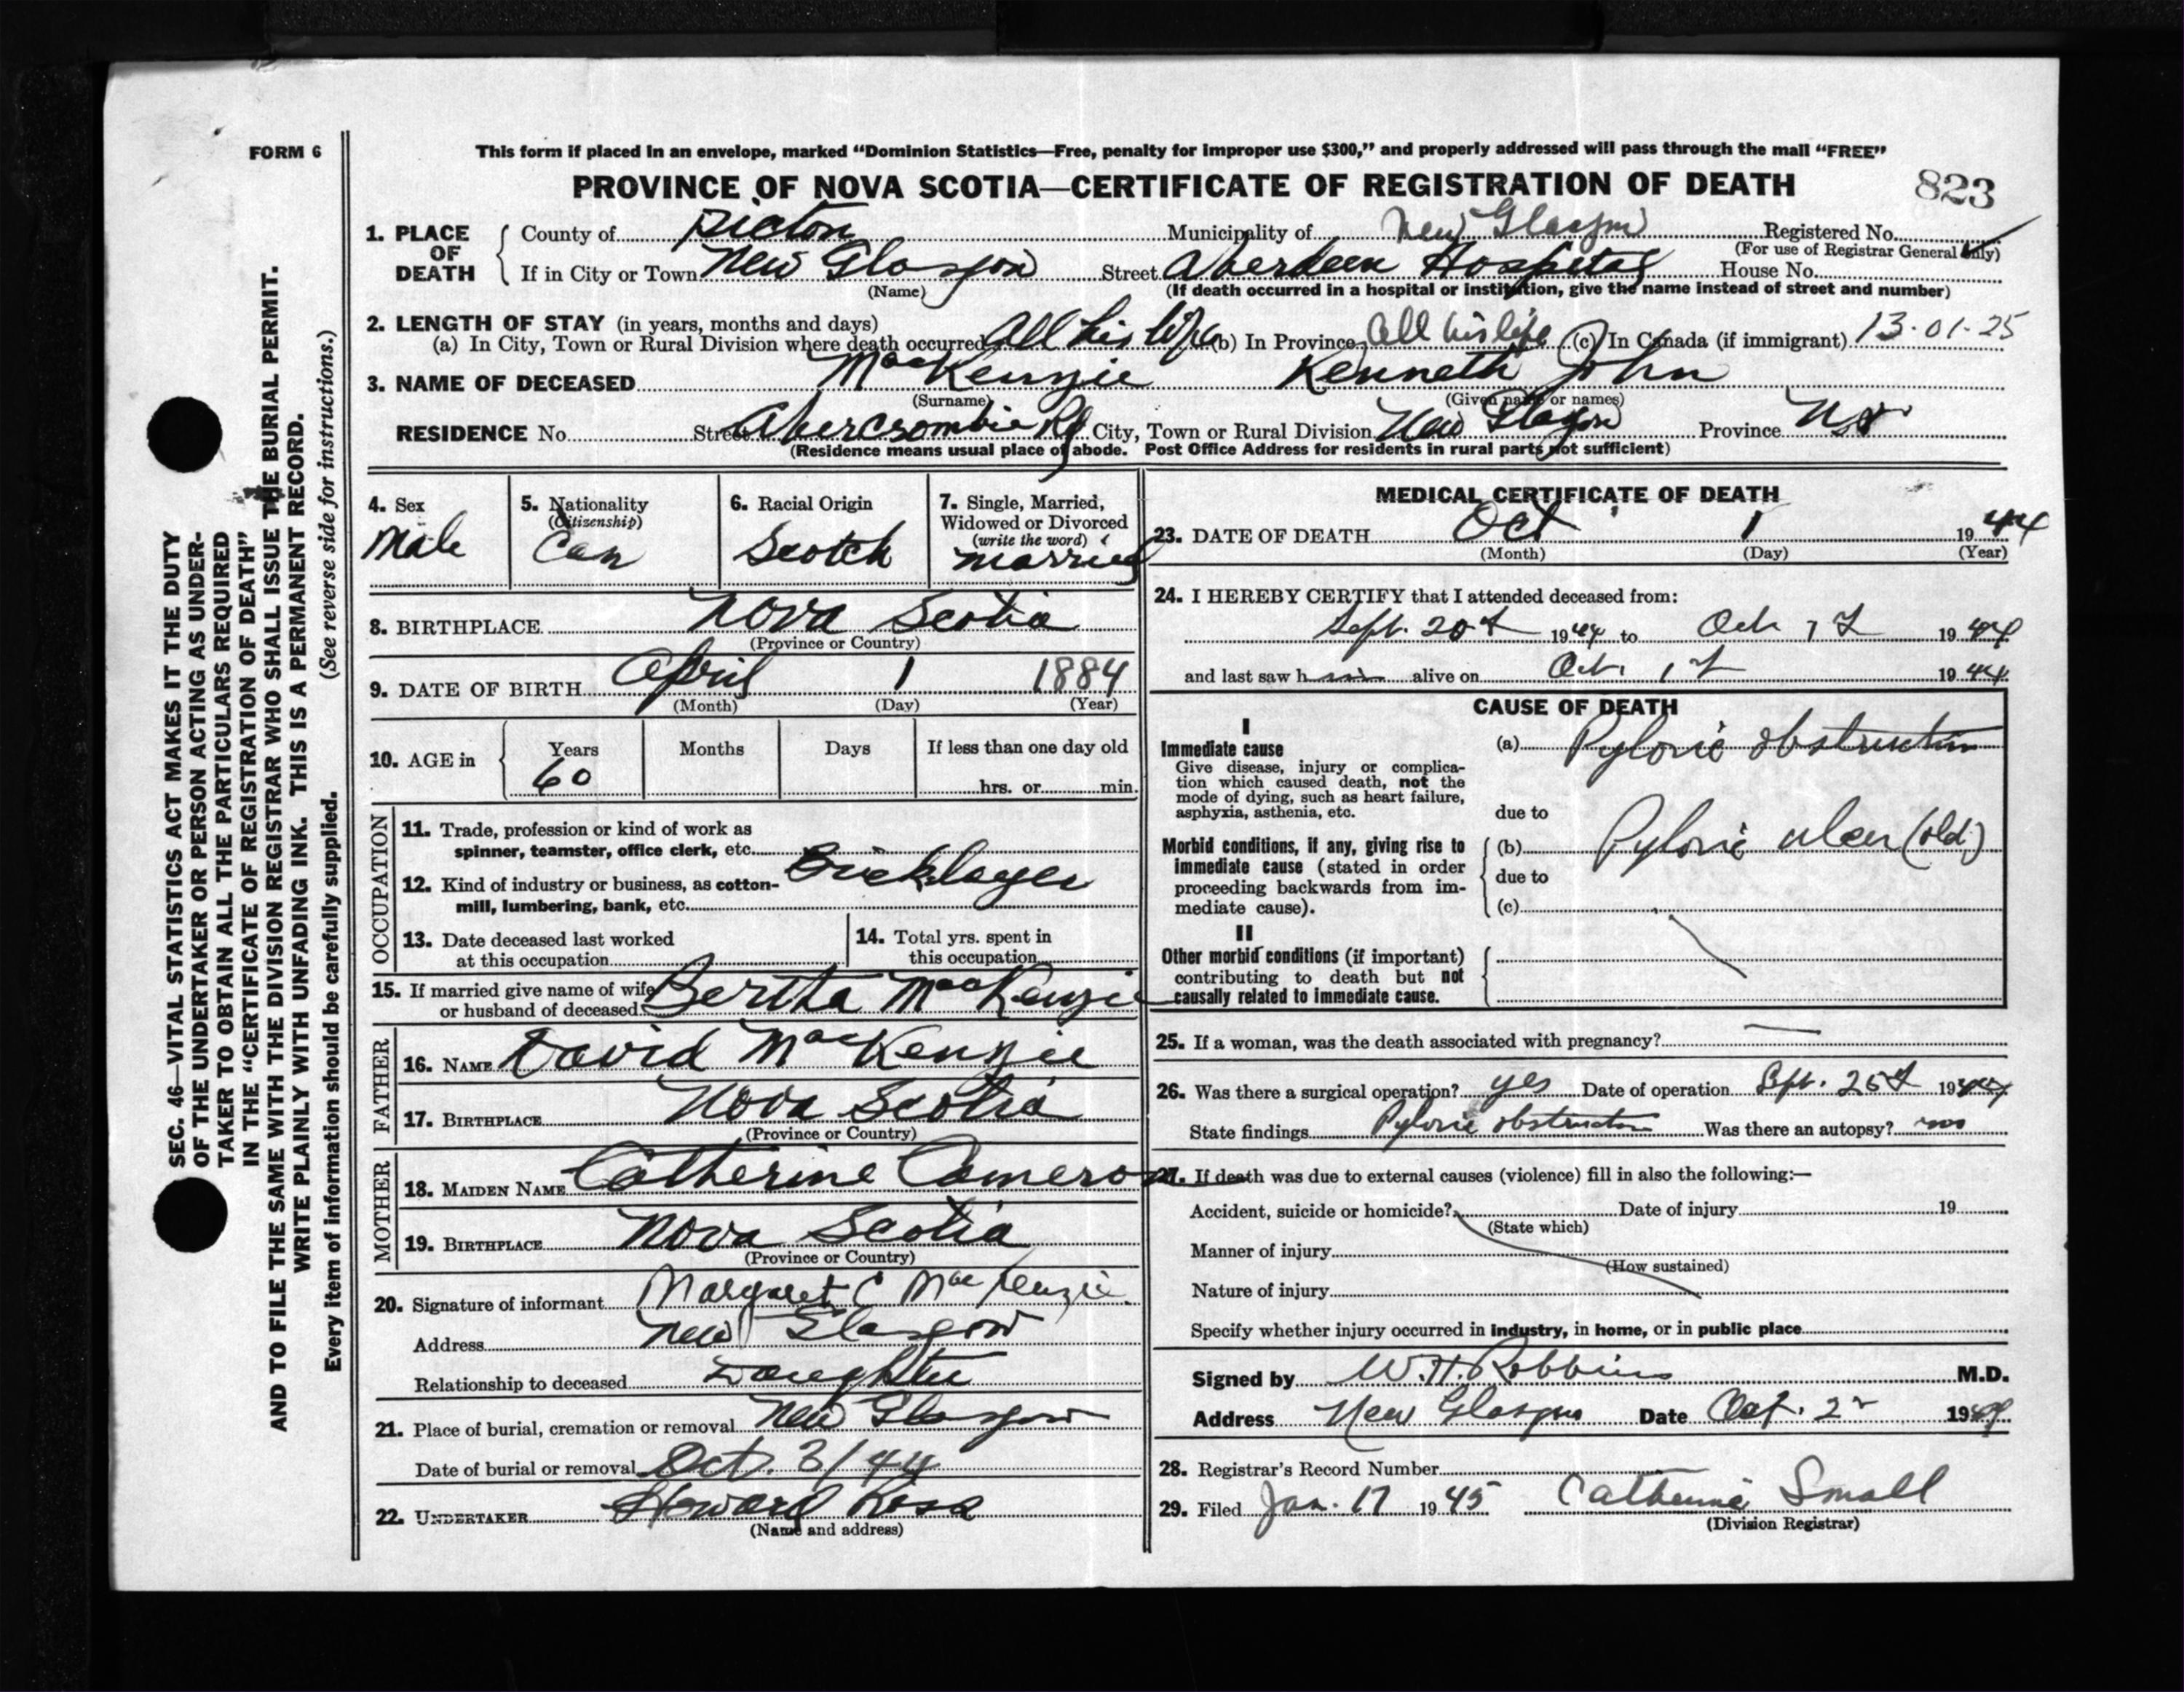 FORM 6
This form if placed in an envelope, marked “Dominion Statistics—Free, penalty for improper use $300,” and properly addressed will pass through the mail “FREE”
PROVINCE OF NOVA SCOTIA—CERTIFICATE OF REGISTRATION OF DEATH
823
1. PLACE OF DEATH County of Pictou Municipality of New Glasgow Registered No.
(For use of Registrar General only)
If in City or Town New Glasgow Street Aberdeen Hospital House No.
(Name) (If death occurred in a hospital or institution, give the name instead of street and number)
2. LENGTH OF STAY (in years, months and days)
(a) In City, Town or Rural Division where death occurred All his life (b) In Province All his life (c) In Canada (if immigrant) 13-01-25
3. NAME OF DECEASED MacKenzie Kenneth John
(Surname) (Given name or names)
RESIDENCE No. Street Abercrombie Rd City, Town or Rural Division New Glasgow Province N.S.
(Residence means usual place of abode. Post Office Address for residents in rural parts not sufficient)
4. Sex Male
5. Nationality (Citizenship) Can
6. Racial Origin Scotch
7. Single, Married, Widowed or Divorced (write the word) married
8. BIRTHPLACE Nova Scotia
(Province or Country)
9. DATE OF BIRTH April 1 1884
(Month) (Day) (Year)
10. AGE in Years Months Days If less than one day old
60 hrs. or min.
OCCUPATION
11. Trade, profession or kind of work as
spinner, teamster, office clerk, etc.
Bricklayer
12. Kind of industry or business, as cotton-
mill, lumbering, bank, etc.
13. Date deceased last worked
at this occupation
14. Total yrs. spent in
this occupation
15. If married give name of wife
or husband of deceased Bertha MacKenzie
FATHER
16. NAME David MacKenzie
17. BIRTHPLACE Nova Scotia
(Province or Country)
MOTHER
18. MAIDEN NAME Catherine Cameron
19. BIRTHPLACE Nova Scotia
(Province or Country)
20. Signature of informant Margaret C MacKenzie
Address New Glasgow
Relationship to deceased Daughter
21. Place of burial, cremation or removal New Glasgow
Date of burial or removal Oct. 3/44
22. UNDERTAKER Howard Ross
(Name and address)
MEDICAL CERTIFICATE OF DEATH
23. DATE OF DEATH Oct 1 1944
(Month) (Day) (Year)
24. I HEREBY CERTIFY that I attended deceased from:
Sept. 20 1944 to Oct 1 1944
and last saw him alive on Oct. 1 1944
CAUSE OF DEATH
I
Immediate cause (a) Pyloric obstruction
Give disease, injury or complica-
tion which caused death, not the
mode of dying, such as heart failure,
asphyxia, asthenia, etc. due to
Morbid conditions, if any, giving rise to (b) Pyloric ulcer (old)
immediate cause (stated in order
proceeding backwards from im- due to
mediate cause). (c)
II
Other morbid conditions (if important)
contributing to death but not
causally related to immediate cause.
25. If a woman, was the death associated with pregnancy? —
26. Was there a surgical operation? yes Date of operation Sept. 25 1944
State findings Pyloric obstruction Was there an autopsy? no
27. If death was due to external causes (violence) fill in also the following:—
Accident, suicide or homicide? Date of injury 19
(State which)
Manner of injury
(How sustained)
Nature of injury
Specify whether injury occurred in industry, in home, or in public place
Signed by W. H. Robbins M.D.
Address New Glasgow Date Oct. 2 1944
28. Registrar's Record Number
29. Filed Jan. 17 1945 Catherine Small
(Division Registrar)
SEC. 46—VITAL STATISTICS ACT MAKES IT THE DUTY
OF THE UNDERTAKER OR PERSON ACTING AS UNDER-
TAKER TO OBTAIN ALL THE PARTICULARS REQUIRED
IN THE “CERTIFICATE OF REGISTRATION OF DEATH”
AND TO FILE THE SAME WITH THE DIVISION REGISTRAR WHO SHALL ISSUE THE BURIAL PERMIT.
WRITE PLAINLY WITH UNFADING INK. THIS IS A PERMANENT RECORD.
Every item of information should be carefully supplied. (See reverse side for instructions.)